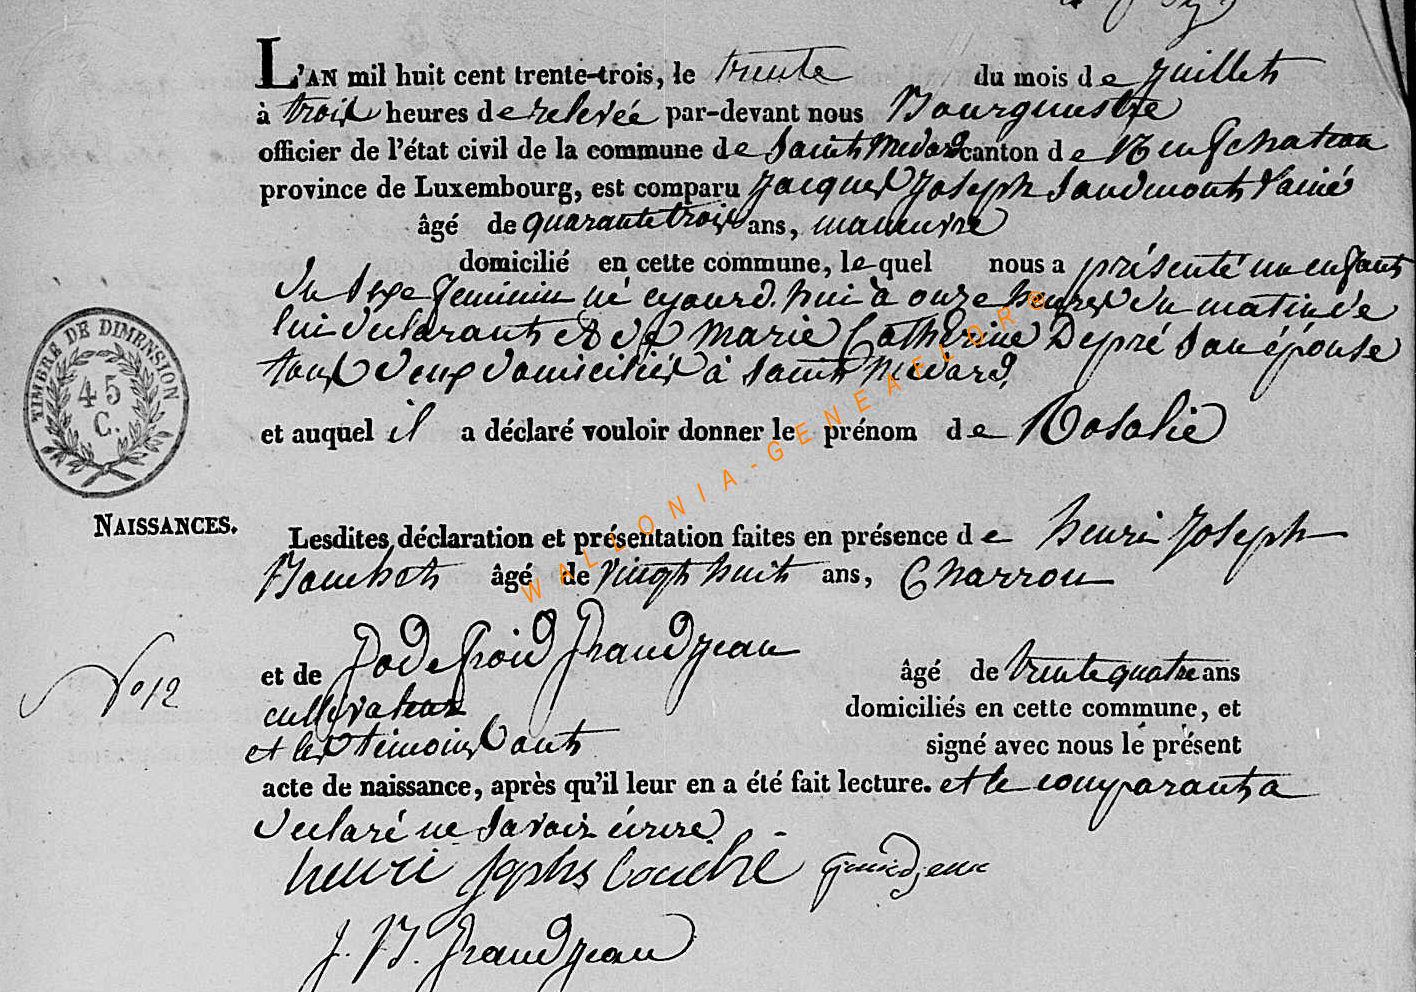 L'AN mil huit cent trente-trois, le trente du mois de juillet
à trois heures de relevée par-devant nous Bourguestre
officier de l'état civil de la commune de Saint Medard canton de Neufchateau
province de Luxembourg, est comparu Jacques Joseph l'ainé
âgé de quarante trois ans, maneuvre
domicilié en cette commune, lequel nous a présenté un enfant
du sexe feminin né ejourd'hui à onze heures du matin de
lui declarant et de Marie Catherine Depré son épouse
tous deux domiciliés à Saint Medard,
et auquel il a déclaré vouloir donner le prénom de Rosalie
TIMBRE DE DIMENSION
45
C.
NAISSANCES.
Lesdites déclaration et présentation faites en présence de henri Joseph
âgé de vingt huit ans, Charron
No 12
et de Godefroid Grandjean âgé de trente quatre ans
cultivateur domiciliés en cette commune, et
et les témoins ont signé avec nous le présent
acte de naissance, après qu'il leur en a été fait lecture. et le comparant a
declaré ne savoir écrire
henri
J. B. Grandjean
WALLONIA-GENEAFLORE